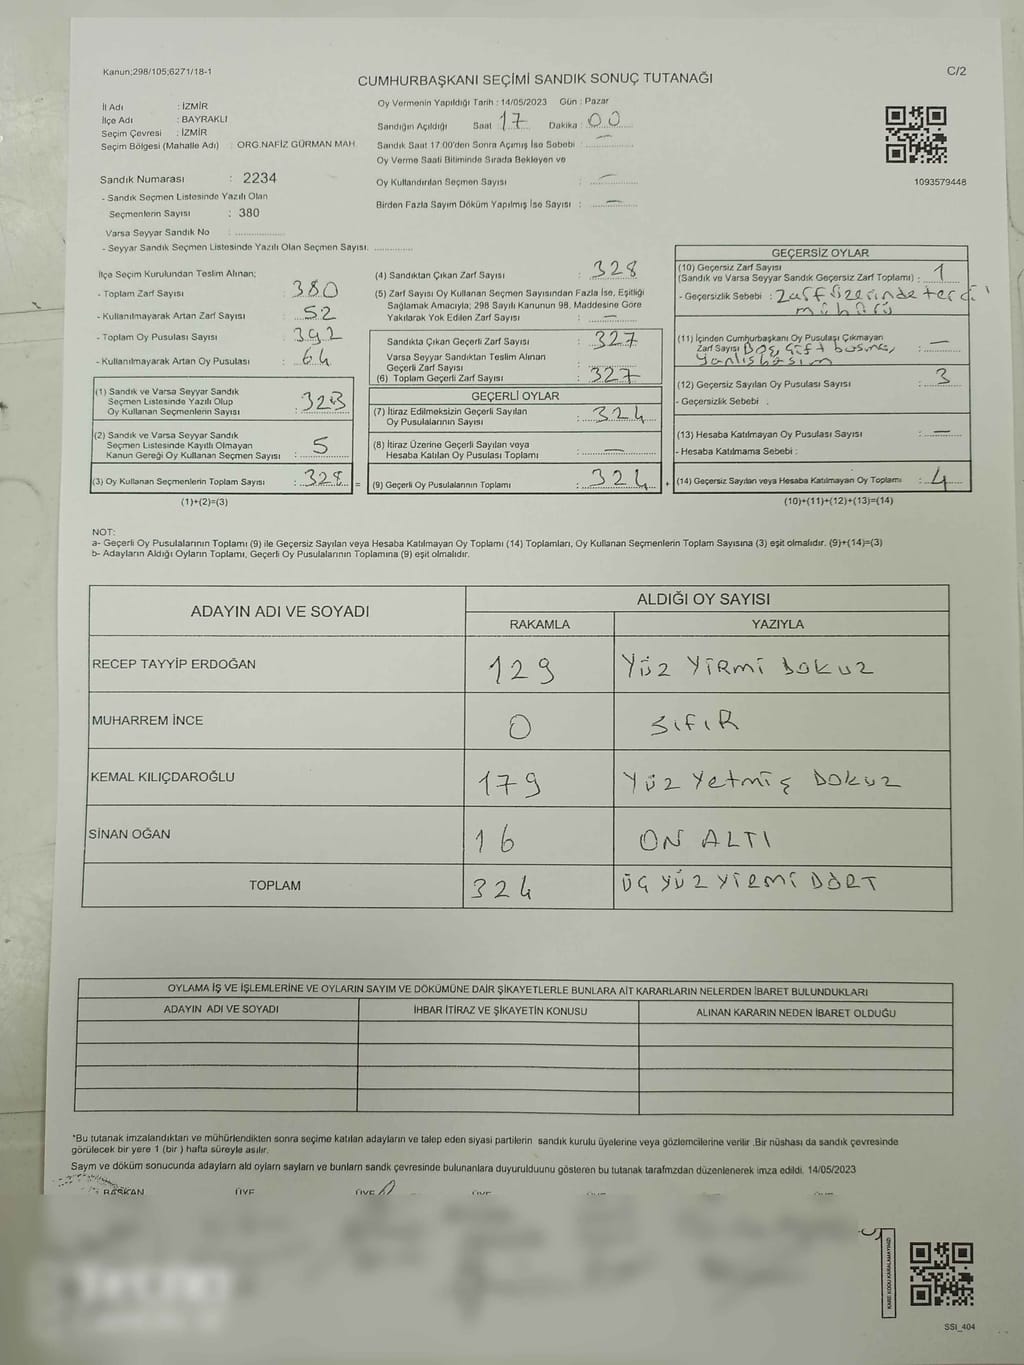 Kanun;298/105;6271/18-1
C/2
CUMHURBAŞKANI SEÇİMİ SANDIK SONUÇ TUTANAĞI
İl Adı : İZMİR
İlçe Adı : BAYRAKLI
Seçim Çevresi : İZMİR
Seçim Bölgesi (Mahalle Adı) : ORG.NAFİZ GÜRMAN MAH.
Oy Vermenin Yapıldığı Tarih : 14/05/2023 Gün : Pazar
Sandığın Açıldığı Saat 17 Dakika : 00
Sandık Saat 17.00'den Sonra Açımış İse Sebebi : —
Oy Verme Saati Bitiminde Sırada Bekleyen ve
Oy Kullandırılan Seçmen Sayısı : —
Birden Fazla Sayım Döküm Yapılmış İse Sayısı : —
1093579448
Sandık Numarası : 2234
- Sandık Seçmen Listesinde Yazılı Olan
Seçmenlerin Sayısı : 380
Varsa Seyyar Sandık No :
- Seyyar Sandık Seçmen Listesinde Yazılı Olan Seçmen Sayısı.
İlçe Seçim Kurulundan Teslim Alınan;
- Toplam Zarf Sayısı : 380
- Kullanılmayarak Artan Zarf Sayısı : 52
- Toplam Oy Pusulası Sayısı : 392
- Kullanılmayarak Artan Oy Pusulası : 64
(1) Sandık ve Varsa Seyyar Sandık
Seçmen Listesinde Yazılı Olup
Oy Kullanan Seçmenlerin Sayısı : 323
(2) Sandık ve Varsa Seyyar Sandık
Seçmen Listesinde Kayıtlı Olmayan
Kanun Gereği Oy Kullanan Seçmen Sayısı : 5
(3) Oy Kullanan Seçmenlerin Toplam Sayısı : 328 =
(1)+(2)=(3)
(4) Sandıktan Çıkan Zarf Sayısı : 328
(5) Zarf Sayısı Oy Kullanan Seçmen Sayısından Fazla İse, Eşitliği
Sağlamak Amacıyla; 298 Sayılı Kanunun 98. Maddesine Göre
Yakılarak Yok Edilen Zarf Sayısı : —
Sandıkta Çıkan Geçerli Zarf Sayısı : 327
Varsa Seyyar Sandıktan Teslim Alınan
Geçerli Zarf Sayısı :
(6) Toplam Geçerli Zarf Sayısı : 327
GEÇERLİ OYLAR
(7) İtiraz Edilmeksizin Geçerli Sayılan
Oy Pusulalarının Sayısı : 324
(8) İtiraz Üzerine Geçerli Sayılan veya
Hesaba Katılan Oy Pusulası Toplamı : —
(9) Geçerli Oy Pusulalarının Toplamı : 324 +
GEÇERSİZ OYLAR
(10) Geçersiz Zarf Sayısı
(Sandık ve Varsa Seyyar Sandık Geçersiz Zarf Toplamı) : 1
- Geçersizlik Sebebi : Zarf üzerinde
mühürü
(11) İçinden Cumhurbaşkanı Oy Pusulası Çıkmayan
Zarf Sayısı : —
Boş, çift
yanlış basım
(12) Geçersiz Sayılan Oy Pusulası Sayısı : 3
- Geçersizlik Sebebi :
(13) Hesaba Katılmayan Oy Pusulası Sayısı : —
- Hesaba Katılmama Sebebi :
(14) Geçersiz Sayılan veya Hesaba Katılmayan Oy Toplamı : 4
(10)+(11)+(12)+(13)=(14)
NOT:
a- Geçerli Oy Pusulalarının Toplamı (9) ile Geçersiz Sayılan veya Hesaba Katılmayan Oy Toplamı (14) Toplamları, Oy Kullanan Seçmenlerin Toplam Sayısına (3) eşit olmalıdır. (9)+(14)=(3)
b- Adayların Aldığı Oyların Toplamı, Geçerli Oy Pusulalarının Toplamına (9) eşit olmalıdır.
ADAYIN ADI VE SOYADI
ALDIĞI OY SAYISI
RAKAMLA YAZIYLA
RECEP TAYYİP ERDOĞAN 129 YÜZ YİRMİ DOKUZ
MUHARREM İNCE 0 SIFIR
KEMAL KILIÇDAROĞLU 179 YÜZ YETMİŞ DOKUZ
SİNAN OĞAN 16 ON ALTI
TOPLAM 324 ÜÇ YÜZ YİRMİ DÖRT
OYLAMA İŞ VE İŞLEMLERİNE VE OYLARIN SAYIM VE DÖKÜMÜNE DAİR ŞİKAYETLERLE BUNLARA AİT KARARLARIN NELERDEN İBARET BULUNDUKLARI
ADAYIN ADI VE SOYADI İHBAR İTİRAZ VE ŞİKAYETİN KONUSU ALINAN KARARIN NEDEN İBARET OLDUĞU
*Bu tutanak imzalandıktan ve mühürlendikten sonra seçime katılan adayların ve talep eden siyasi partilerin sandık kurulu üyelerine veya gözlemcilerine verilir .Bir nüshası da sandık çevresinde
görülecek bir yere 1 (bir ) hafta süreyle asılır.
Saym ve döküm sonucunda adaylarn ald oylarn saylarn ve bunlarn sandk çevresinde bulunanlara duyurulduunu gösteren bu tutanak tarafmzdan düzenlenerek imza edildi. 14/05/2023
BAŞKAN ÜYE ÜYE ÜYE ÜYE ÜYE
KARE KODU KARALAMAYINIZ!
SSI_404